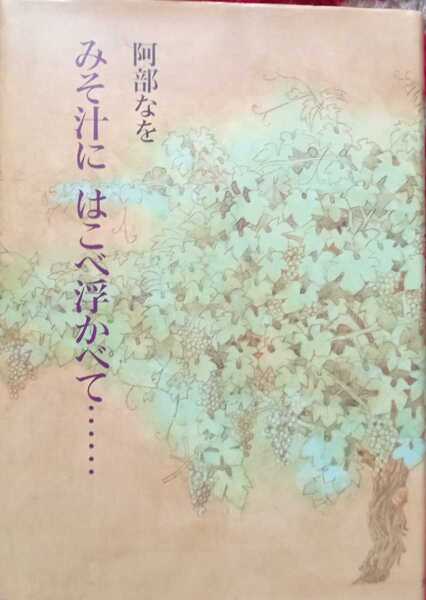 阿部なを
みそ汁に はこべ浮かべて……